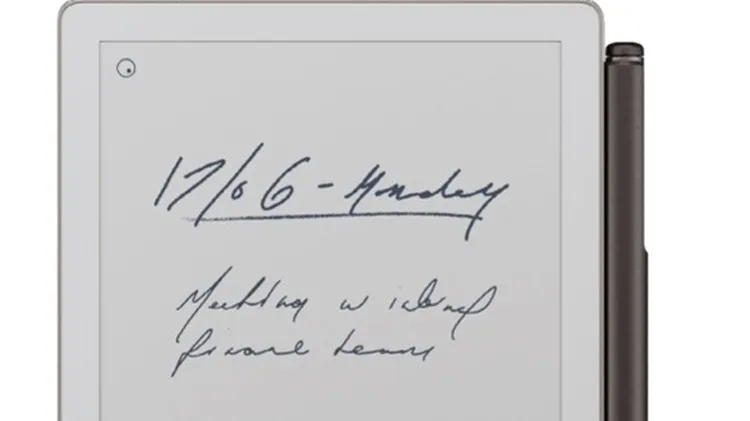 17/06 - Monday
Meeting w inland
finance team